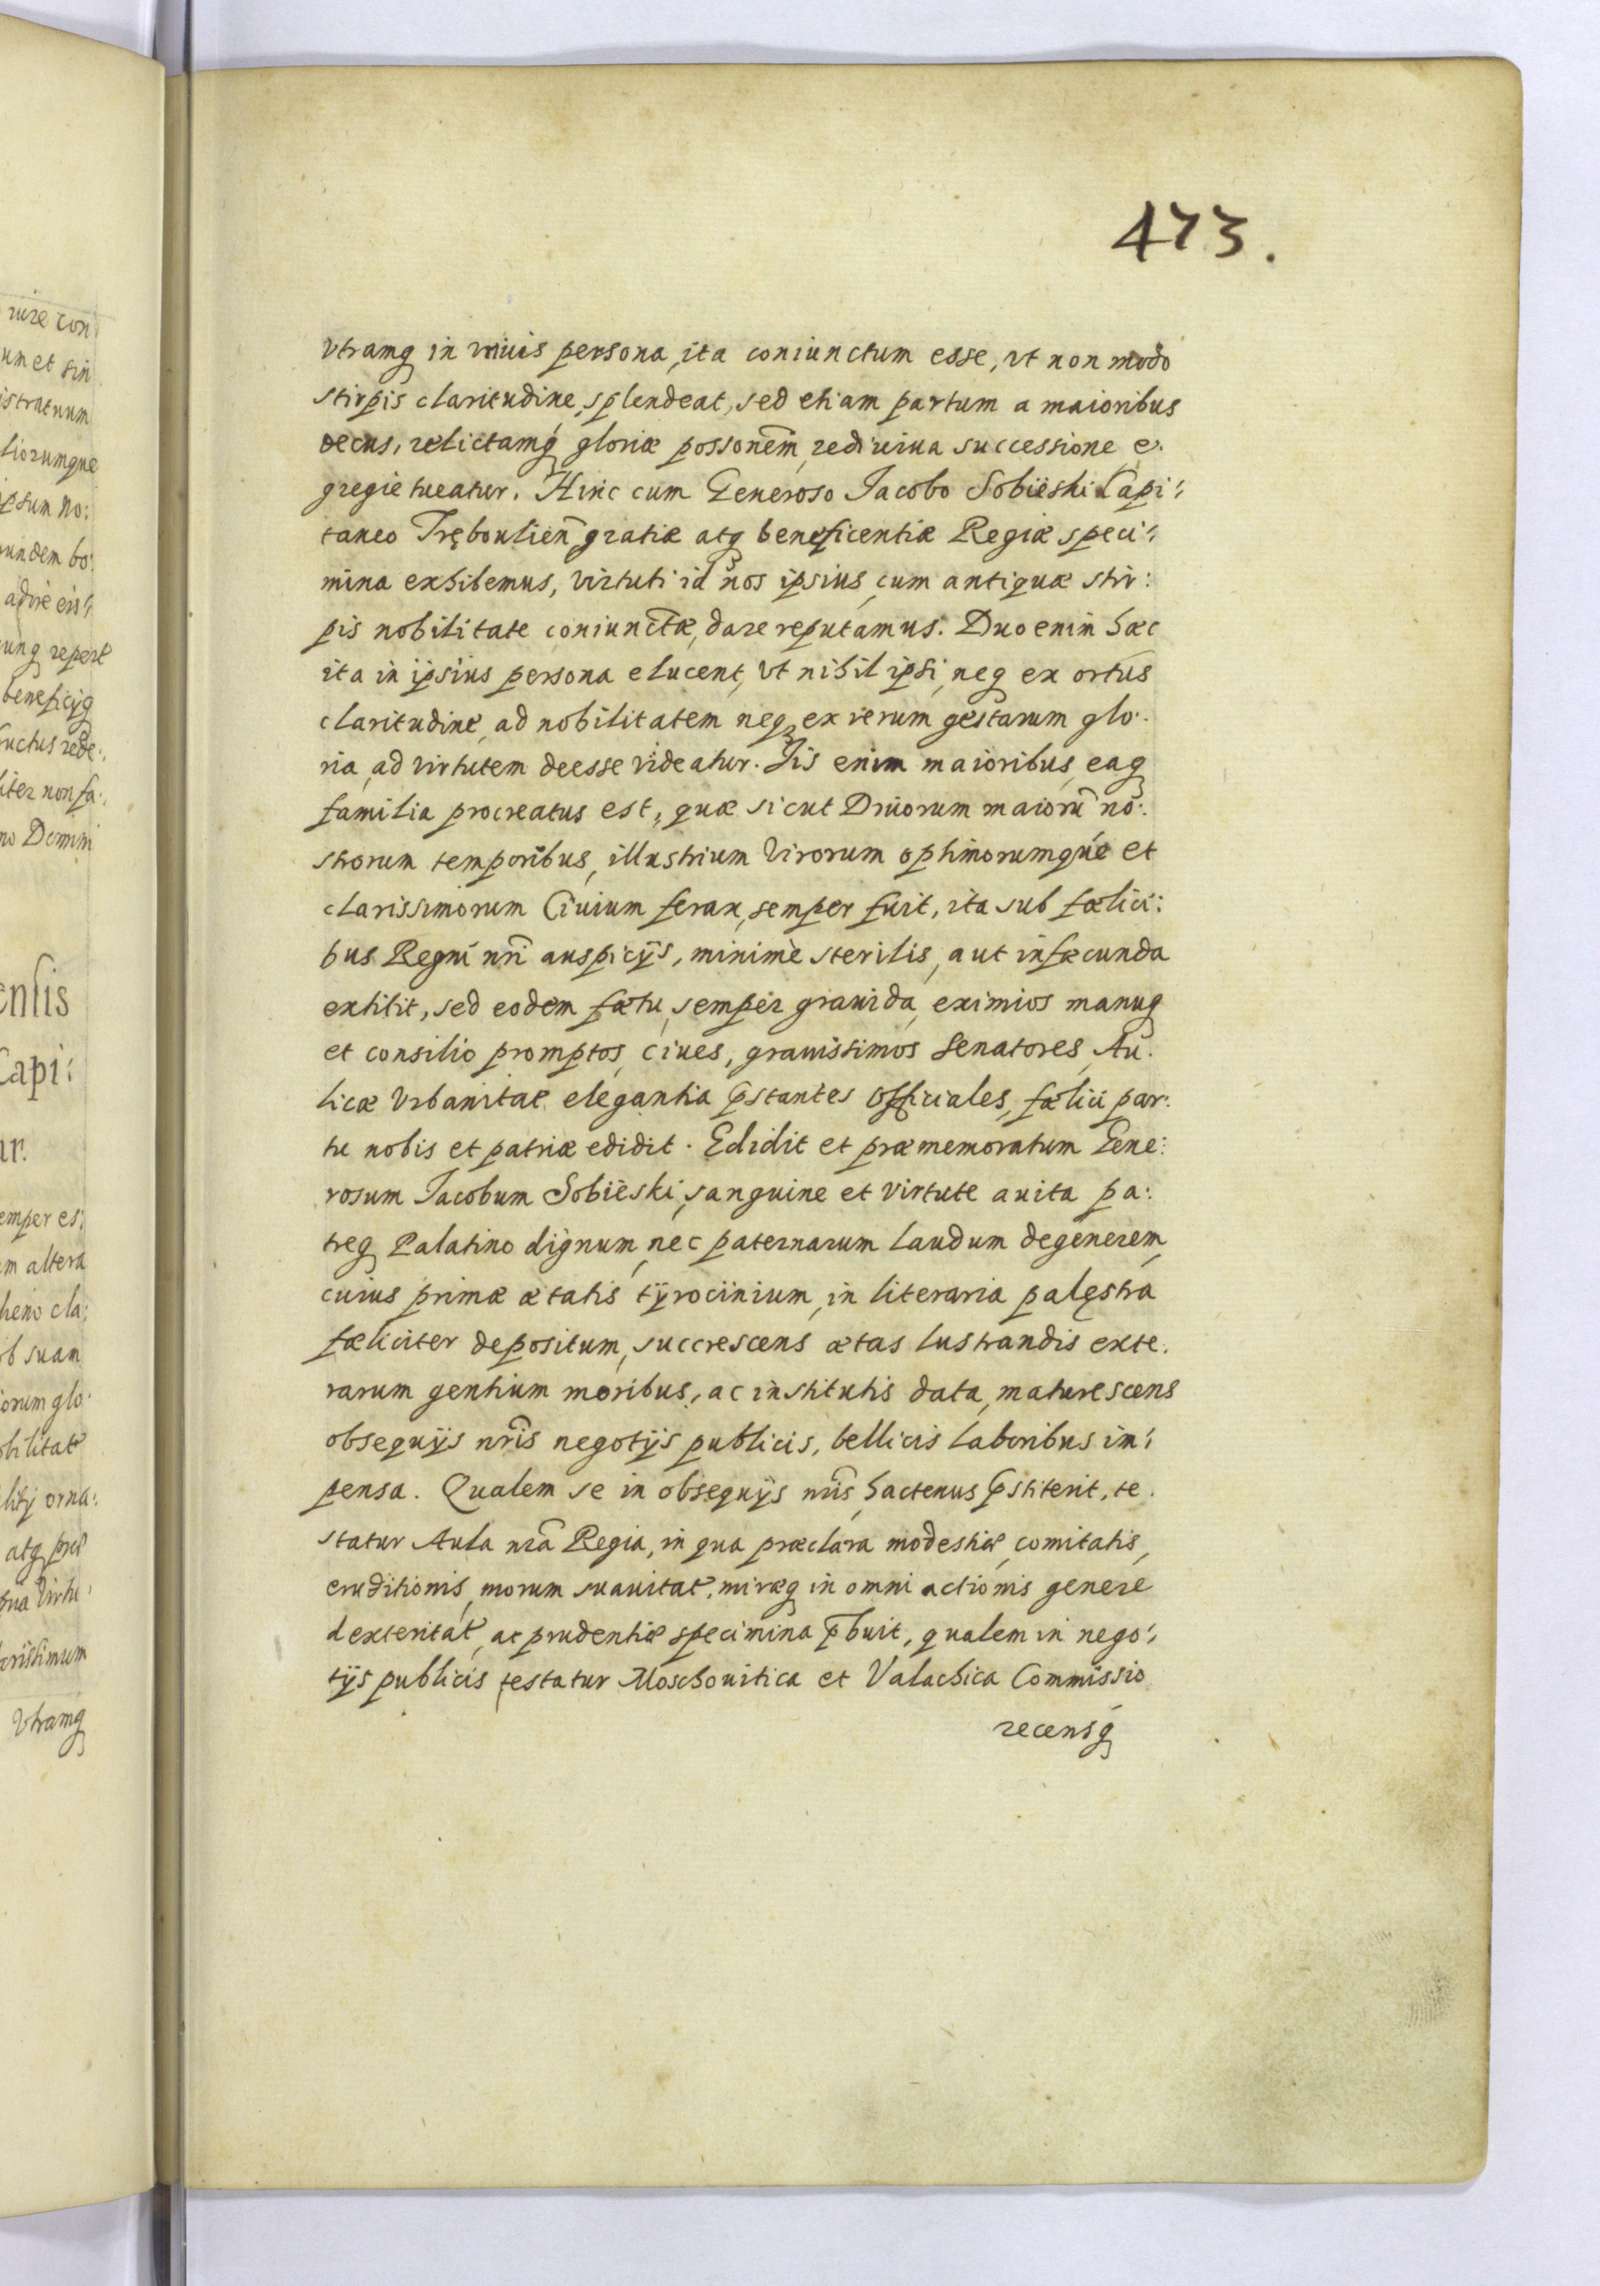 473.
vtramq in vnius persona, ita coniunctum esse, vt non modo
stirpis claritudine, splendeat, sed etiam partum a maioribus
decus, relictamq́ gloriæ possonem̃, rediuiua successione e.
gregie tueatur. Hinc cum Generoso Jacobo Sobieski Capi:
taneo Tręboulien̄ gratiæ atq beneficentiæ Regiæ speci:
mina exhibemus, virtuti id nos ipsius, cum antiquæ stir:
pis nobilitate coniunctæ, dare reputamus. Duo enim hæc
ita in ipsius persona elucent, vt nihil ipsi, neq ex ortus
claritudine, ad nobilitatem neq, ex rerum gestarum glo:
ria, ad virtutem deesse videatur. Iis enim maioribus, eaq
familia procreatus est, quæ sicut Diuorum maiorū no:
strorum temporibus, illustrium Virorum optimorumqúe et
clarissimorum Ciuium ferax, semper fuit, ita sub fælici:
bus Regni nr̃i auspicÿs, minimè sterilis, aut infæcunda
extitit, sed eodem fætu, semper grauida, eximios manuq
et consilio promptos, ciues, grauissimos Senatores, Au.
licæ Vrbanitat elegantia p̄stantes Officiales, fælici par:
tu nobis et patriæ edidit. Edidit et præmemoratum Gene:
rosum Jacobum Sobieski, sanguine et virtute auita pa:
treq Palatino dignum, nec paternarum laudum degenerem,
cuius primæ ætatis tyrocinium, in literaria palęstra
fæliciter depositum, succrescens ætas lustrandis exte.
rarum gentium moribus, ac institutis data, maturescens
obsequÿs nr̃is negotÿs publicis, bellicis laboribus im:
pensa. Qualem se in obsequÿs nr̃is, hactenus p̄stiterit, te.
statur Aula nr̃a Regia, in qua præclara modestiæ, comitatis,
eruditionis, morum suauitat, miræq in omni actionis genere
dexteritat, ac prudentiæ specimina p̄buit, qualem in nego:
tÿs publicis, testatur Moschouitica et Valachica Commissio
recensq